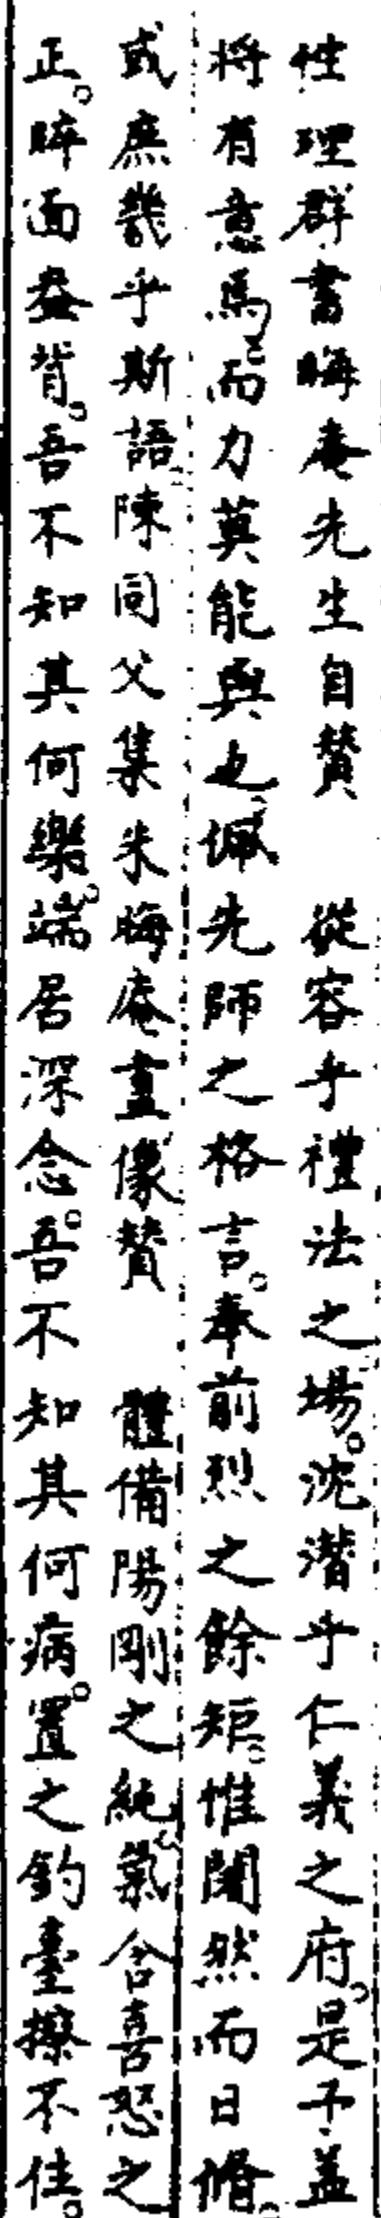 性理群書晦菴先生自贊　從容乎禮法之場。沈潛乎仁義之府。是予蓋
將有意焉。而力莫能與也。佩先師之格言。奉前烈之餘矩。惟闇然而日脩。
或庶幾乎斯語。陳同父集朱晦庵畫像贊　體備陽剛之純。氣含喜怒之
正。睟面盎背。吾不知其何樂。端居深念。吾不知其何病。置之釣臺捺不住。